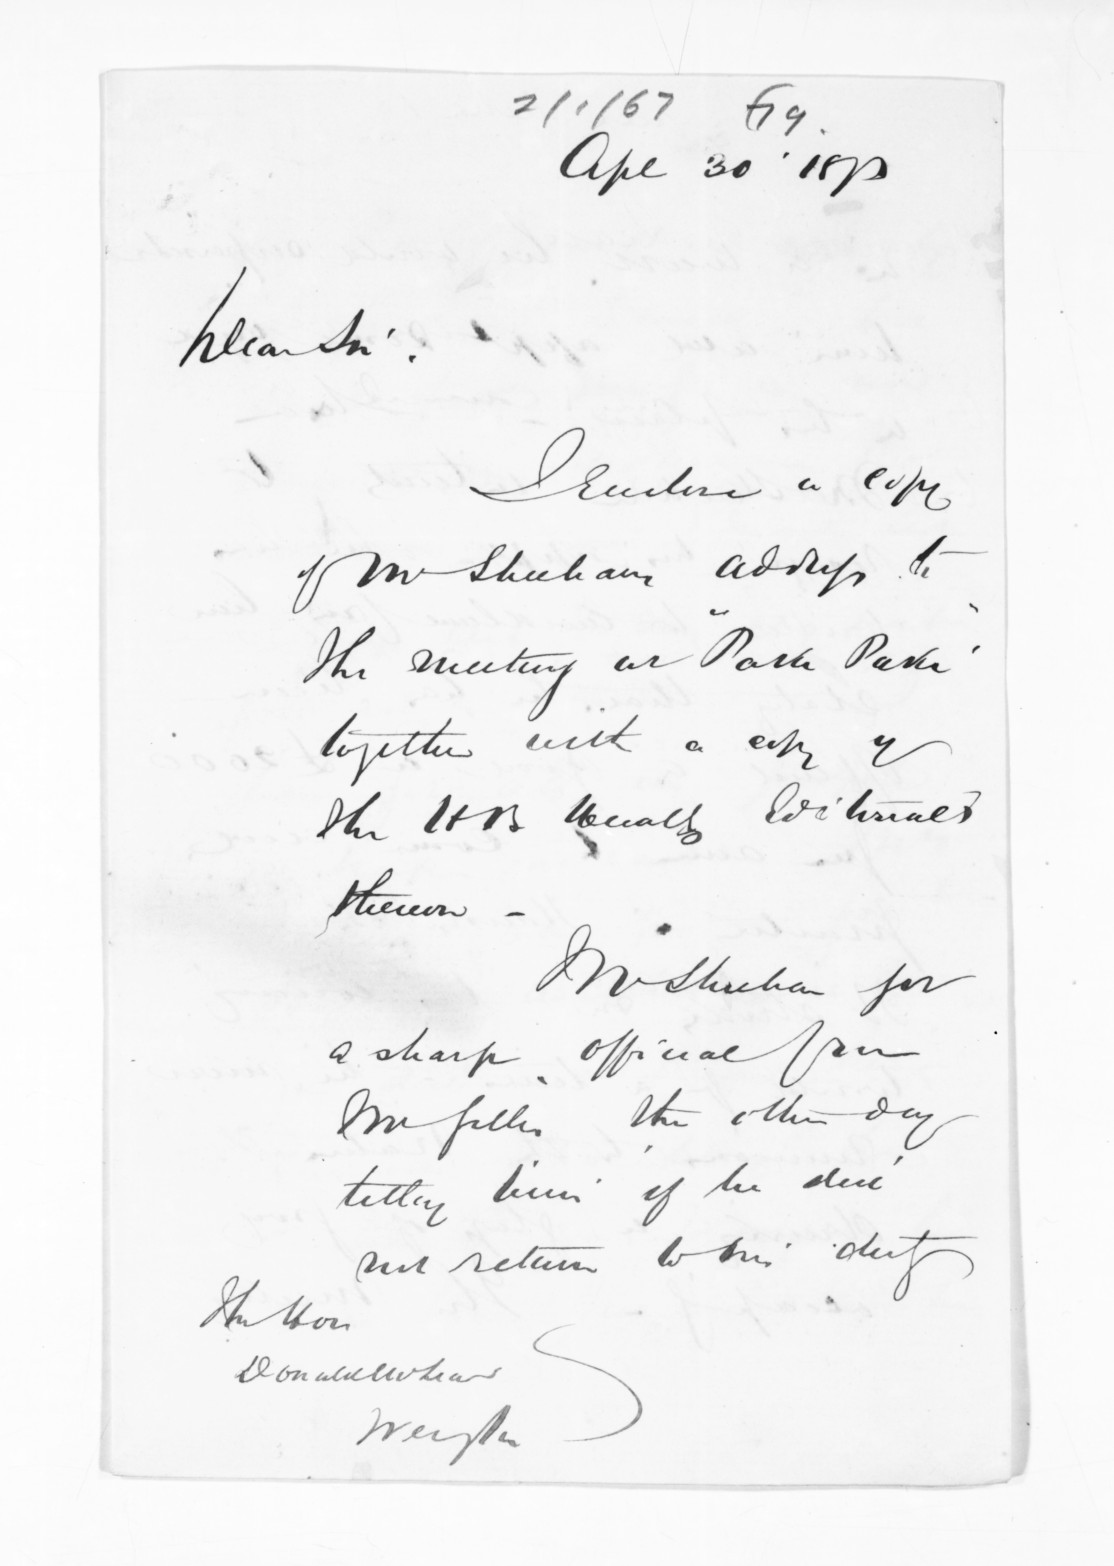 2/1/67
Apl 30 187
Dear Sir.
I Enclose a copy
of Mr Sheehans address to
the meeting at "Paki Paki"
together with a copy of
the HB Herald Editorials
thereon -
Mr Sheehan got
a sharp official from
Mr the other day
telling him if he did
not return to his duty
The Hon
Donald McLean
Wengton